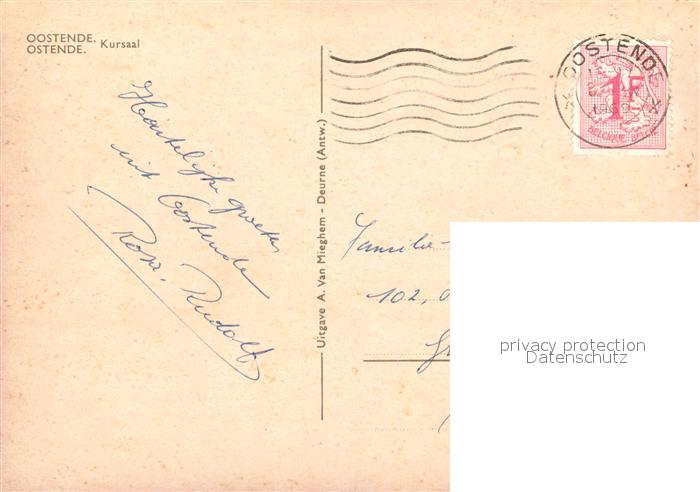 OOSTENDE.
OSTENDE. Kursaal
Hartelijke groeten
uit Oostende
Rudolf
Uitgave A. Van Mieghem - Deurne (Antw.)
OOSTENDE
1F
BELGIQUE-BEL
Familie
102,
privacy protection
Datenschutz